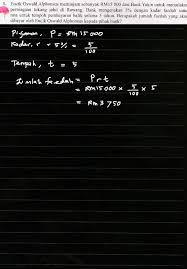 5. Encik Oswald Alphonsus meminjam sebanyak RM15 000 dari Bank Yakin untuk memulakan
perniagaan tukang jahit di Rawang. Bank mengenakan 5% dengan kadar faedah rata
rata untuk tempoh pembayaran balik selama 5 tahun. Berapakah jumlah faedah yang akan
dibayar oleh Encik Oswald Alphonsus kepada pihak bank?
Pinjaman, P = RM 15 000
Kadar, r = 5% = 5/100
Tempoh, t = 5
Jumlah faedah = Prt
= RM 15 000 × 5/100 × 5
= RM 3 750